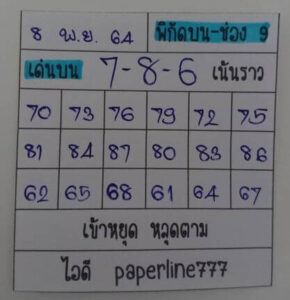 8 พ.ย. 64 พิกัดบน-ช่อง 9
เด่นบน 7-8-6 เน้นราว
70 73 76 79 72 75
81 84 87 80 83 86
62 65 68 61 64 67
เข้าหยุด หลุดตาม
ไอดี paperline777